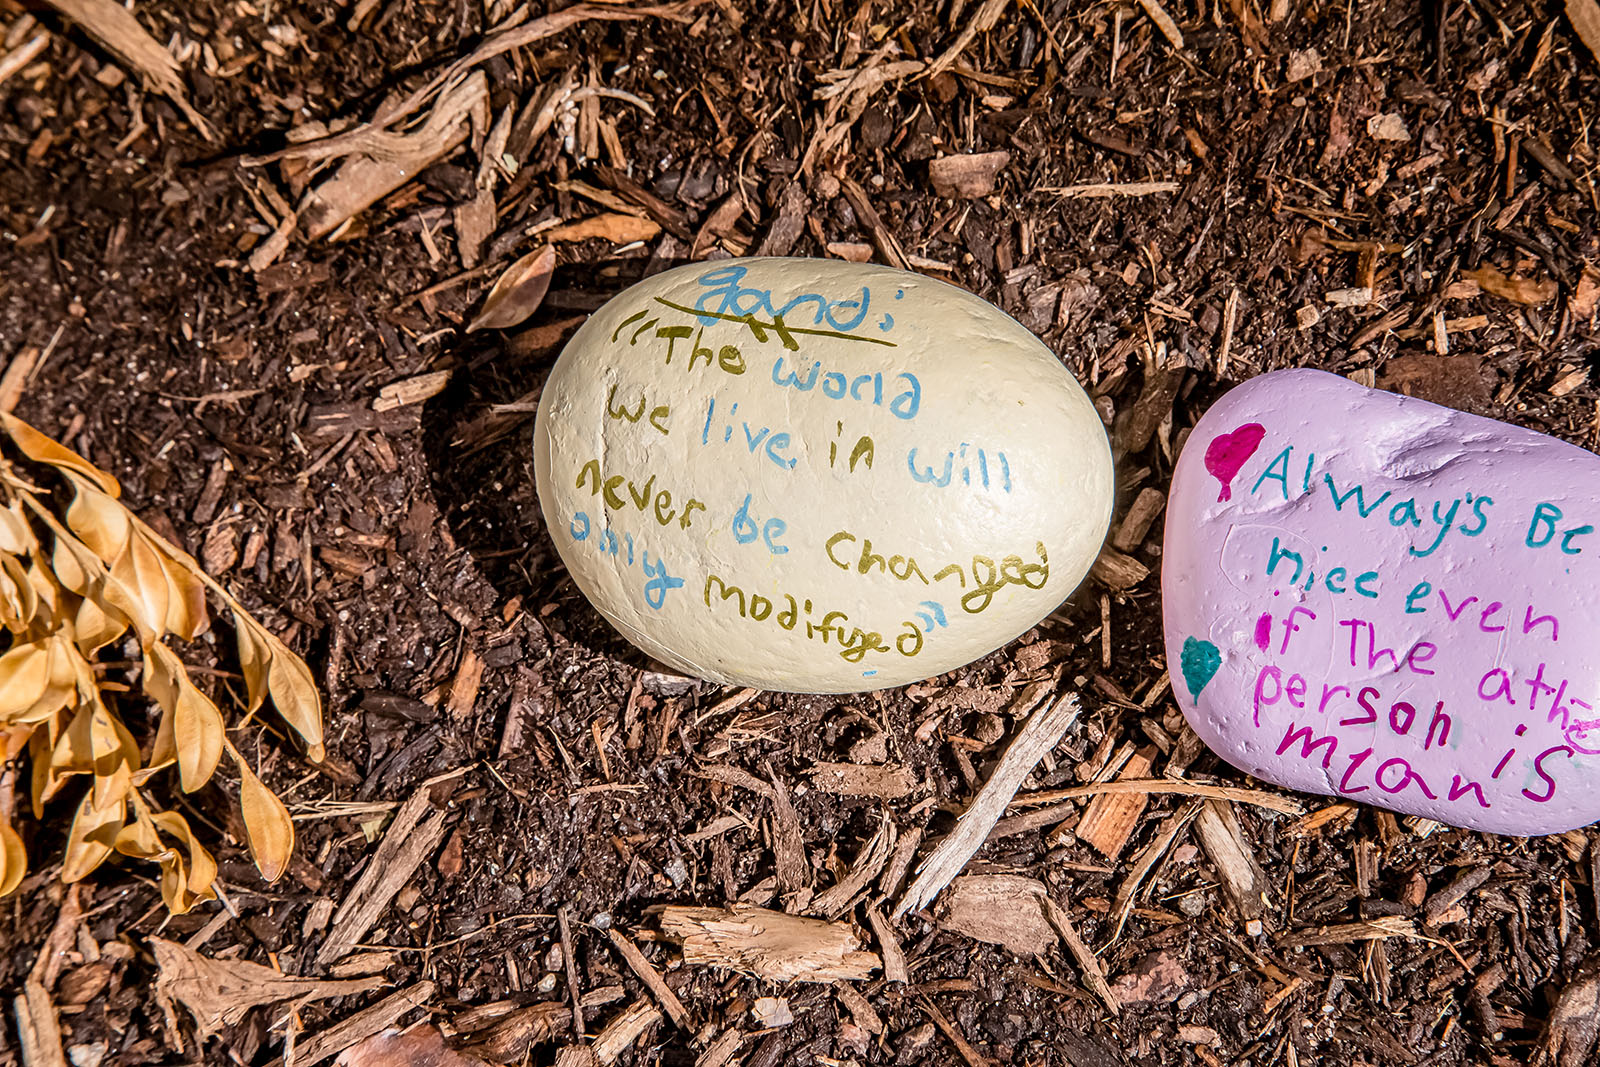 gandi
"The world
we live in will
never be changed
only modifyed"
Always Be
nice even
if The athe
person is
mean